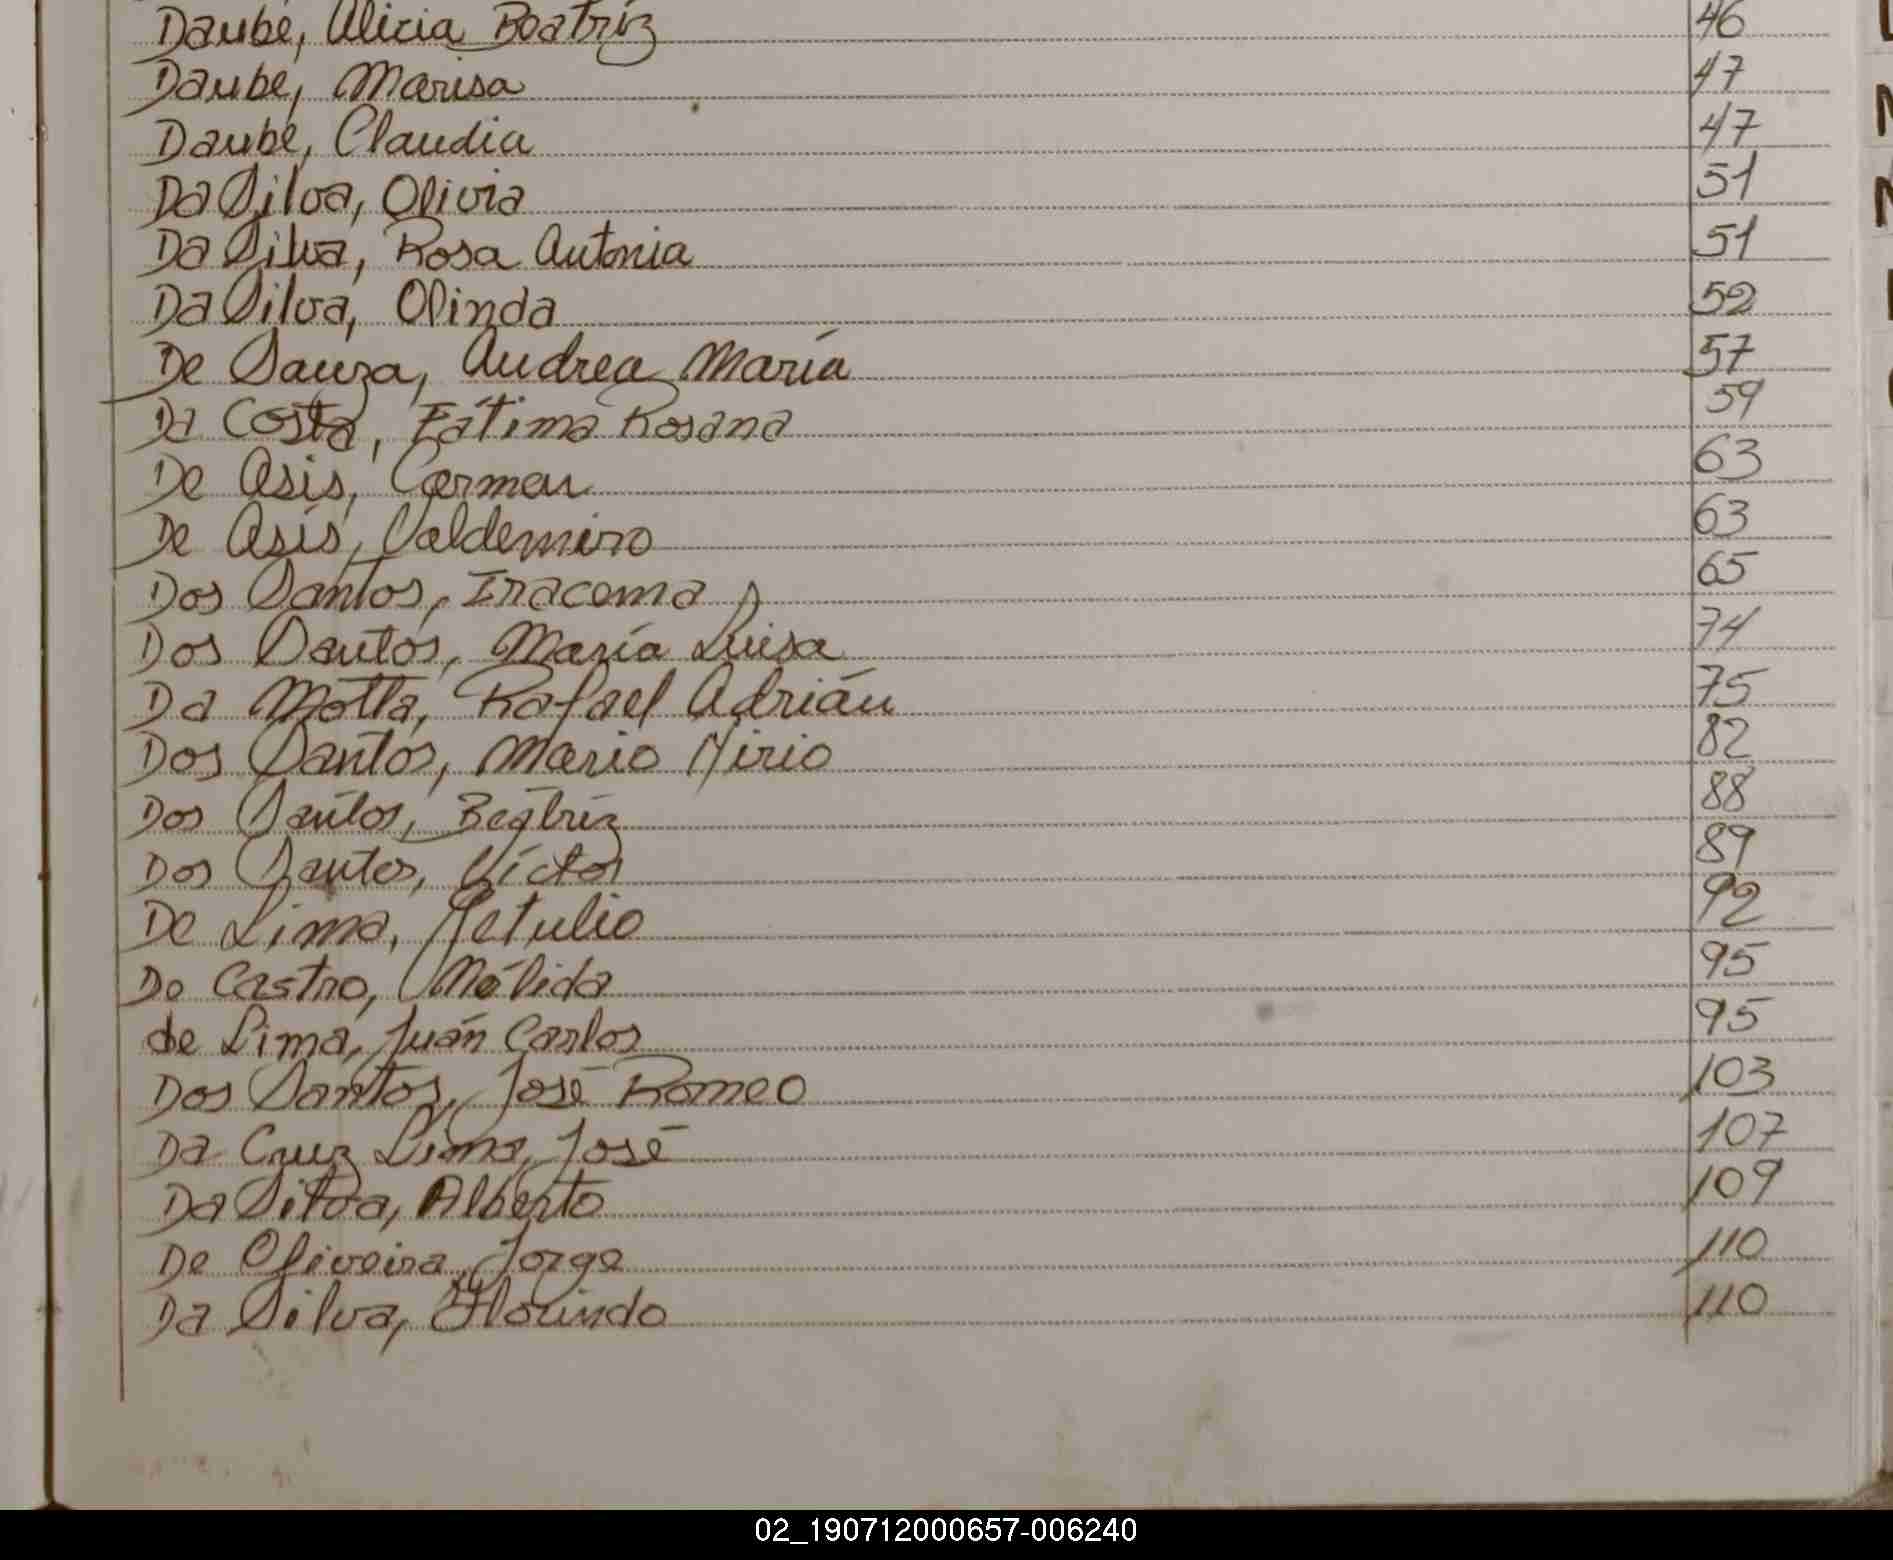 Daubé, Alicia Beatríz 46
Daubé, Marisa 47
Daubé, Claudia 47
Da Silva, Olivia 51
Da Silva, Rosa Antonia 51
Da Silva, Olinda 52
De Sauza, Andrea María 57
Da Costa, Fátima Rosana 59
De Asis, Carmen 63
De Asís, Valdemiro 63
Dos Santos, Iracema 65
Dos Santos, María Luisa 74
Da Motta, Rafael Adrián 75
Dos Santos, Mario 82
Dos Santos, Beatríz 88
Dos Santos, Víctor 89
De Lima, Getulio 92
De Castro, Mélida 95
de Lima, Juán Carlos 95
Dos Santos, José Romeo 103
Da Cruz Lima, José 107
Da Silva, Alberto 109
De Oliveira, Jorge 110
Da Silva, Florindo 110
02_190712000657-006240